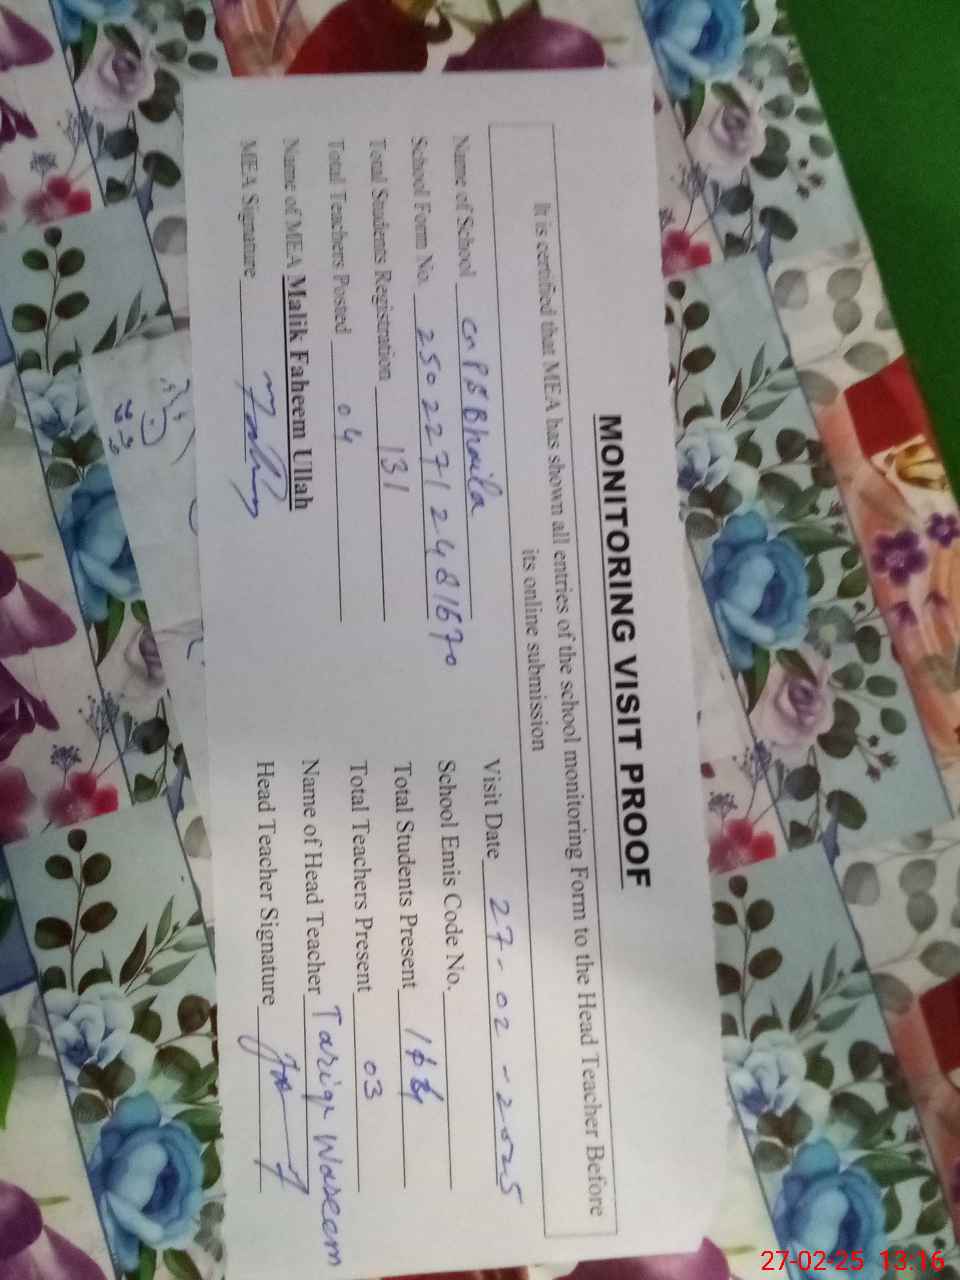 MONITORING VISIT PROOF
It is certified that MEA has shown all entries of the school monitoring Form to the Head Teacher Before
its online submission
Name of School Bhaila Visit Date 27-02-2025
School Form No. 25022712481670 School Emis Code No.
Total Students Registration 131 Total Students Present
Total Teachers Posted 04 Total Teachers Present 03
Name of MEA Malik Faheem Ullah Name of Head Teacher Tariq Waseem
MEA Signature Head Teacher Signature
27-02-25 13:16